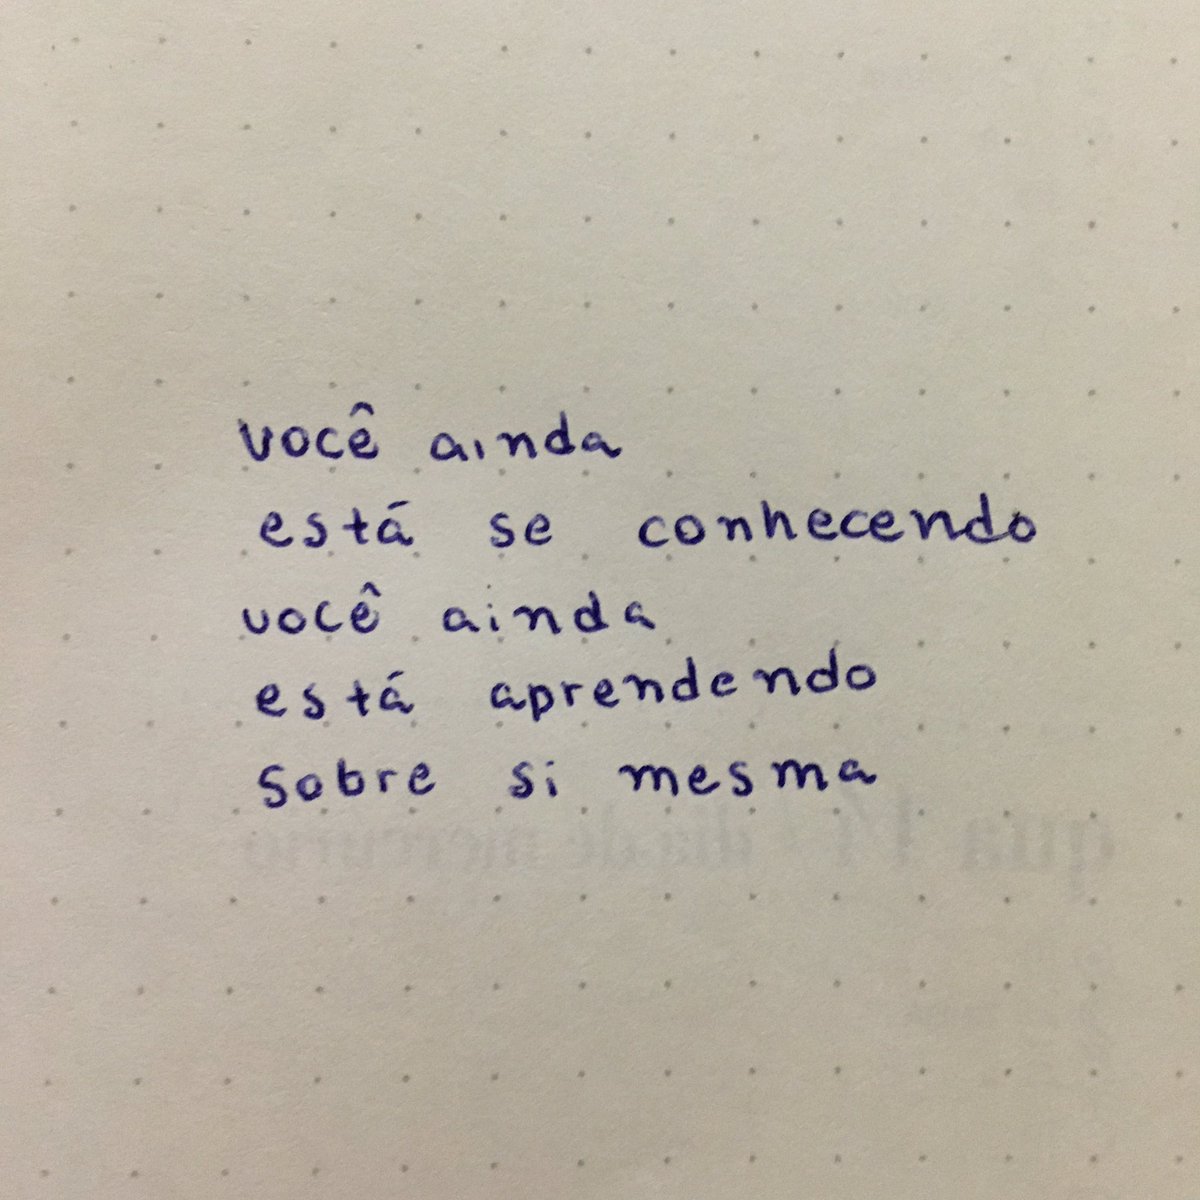 você ainda
está se conhecendo
você ainda
está aprendendo
sobre si mesma